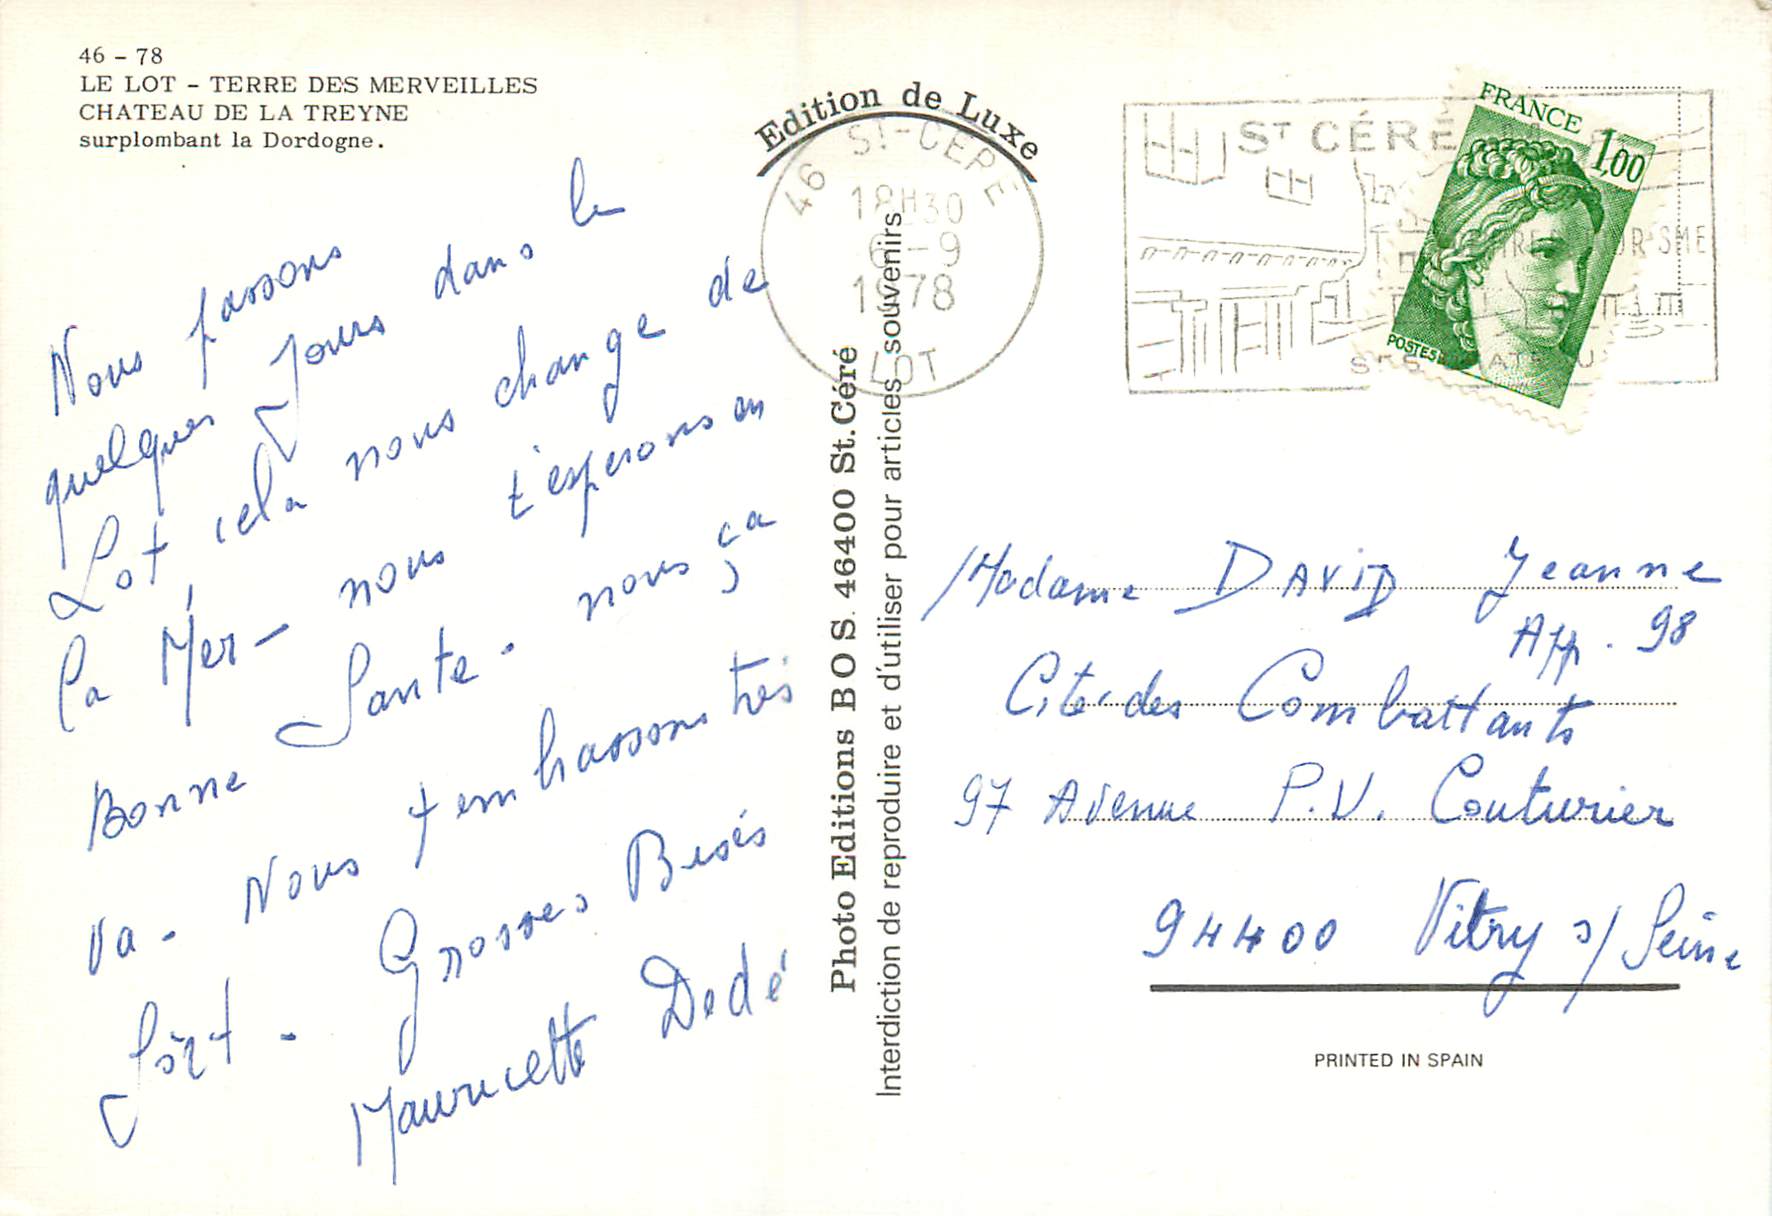 46 - 78
LE LOT - TERRE DES MERVEILLES
CHATEAU DE LA TREYNE
surplombant la Dordogne.
Nous passons
quelques Jours dans le
Lot cela nous change de
la Mer - nous t'esperons en
Bonne Sante - nous ça
va - Nous t embrassons très
Fort - Grosses Bises
Mauricette Dedé
Edition de Luxe
Photo Editions BOS. 46400 St.Céré
Interdiction de reproduire et d'utiliser pour articles souvenirs
46 ST-CERE
18H30
6-9
1978
LOT
ST CÉRÉ
FRANCE
1,00
POSTES
Madame DAVID Jeanne
App. 98
Cité des Combattants
97 Avenue P.V. Couturier
94400 Vitry s/ Seine
PRINTED IN SPAIN